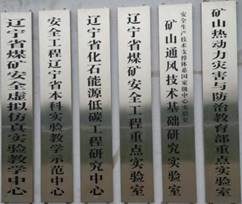 辽宁省煤矿安全虚拟仿真实验教学中心
安全工程辽宁省本科实验教学示范中心
辽宁省化石能源低碳工程研究中心
辽宁省煤矿安全工程重点实验室
安全生产技术支撑体系国家级中心实验室
矿山通风技术基础研究实验室
矿山热动力灾害与防治教育部重点实验室